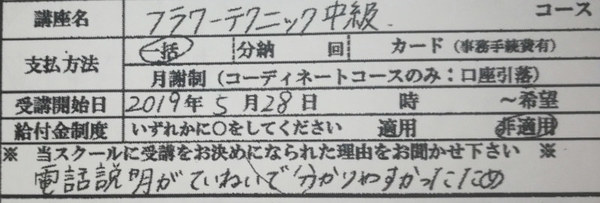 講座名 フラワーテクニック中級 コース
支払方法 一括 分納 回 カード（事務手続費有）
月謝制（コーディネートコースのみ：口座引落）
受講開始日 2019年5月28日 時 〜希望
給付金制度 いずれかに○をしてください 適用 非適用
※ 当スクールに受講をお決めになられた理由をお聞かせ下さい ※
電話説明がていねいで分かりやすかったため